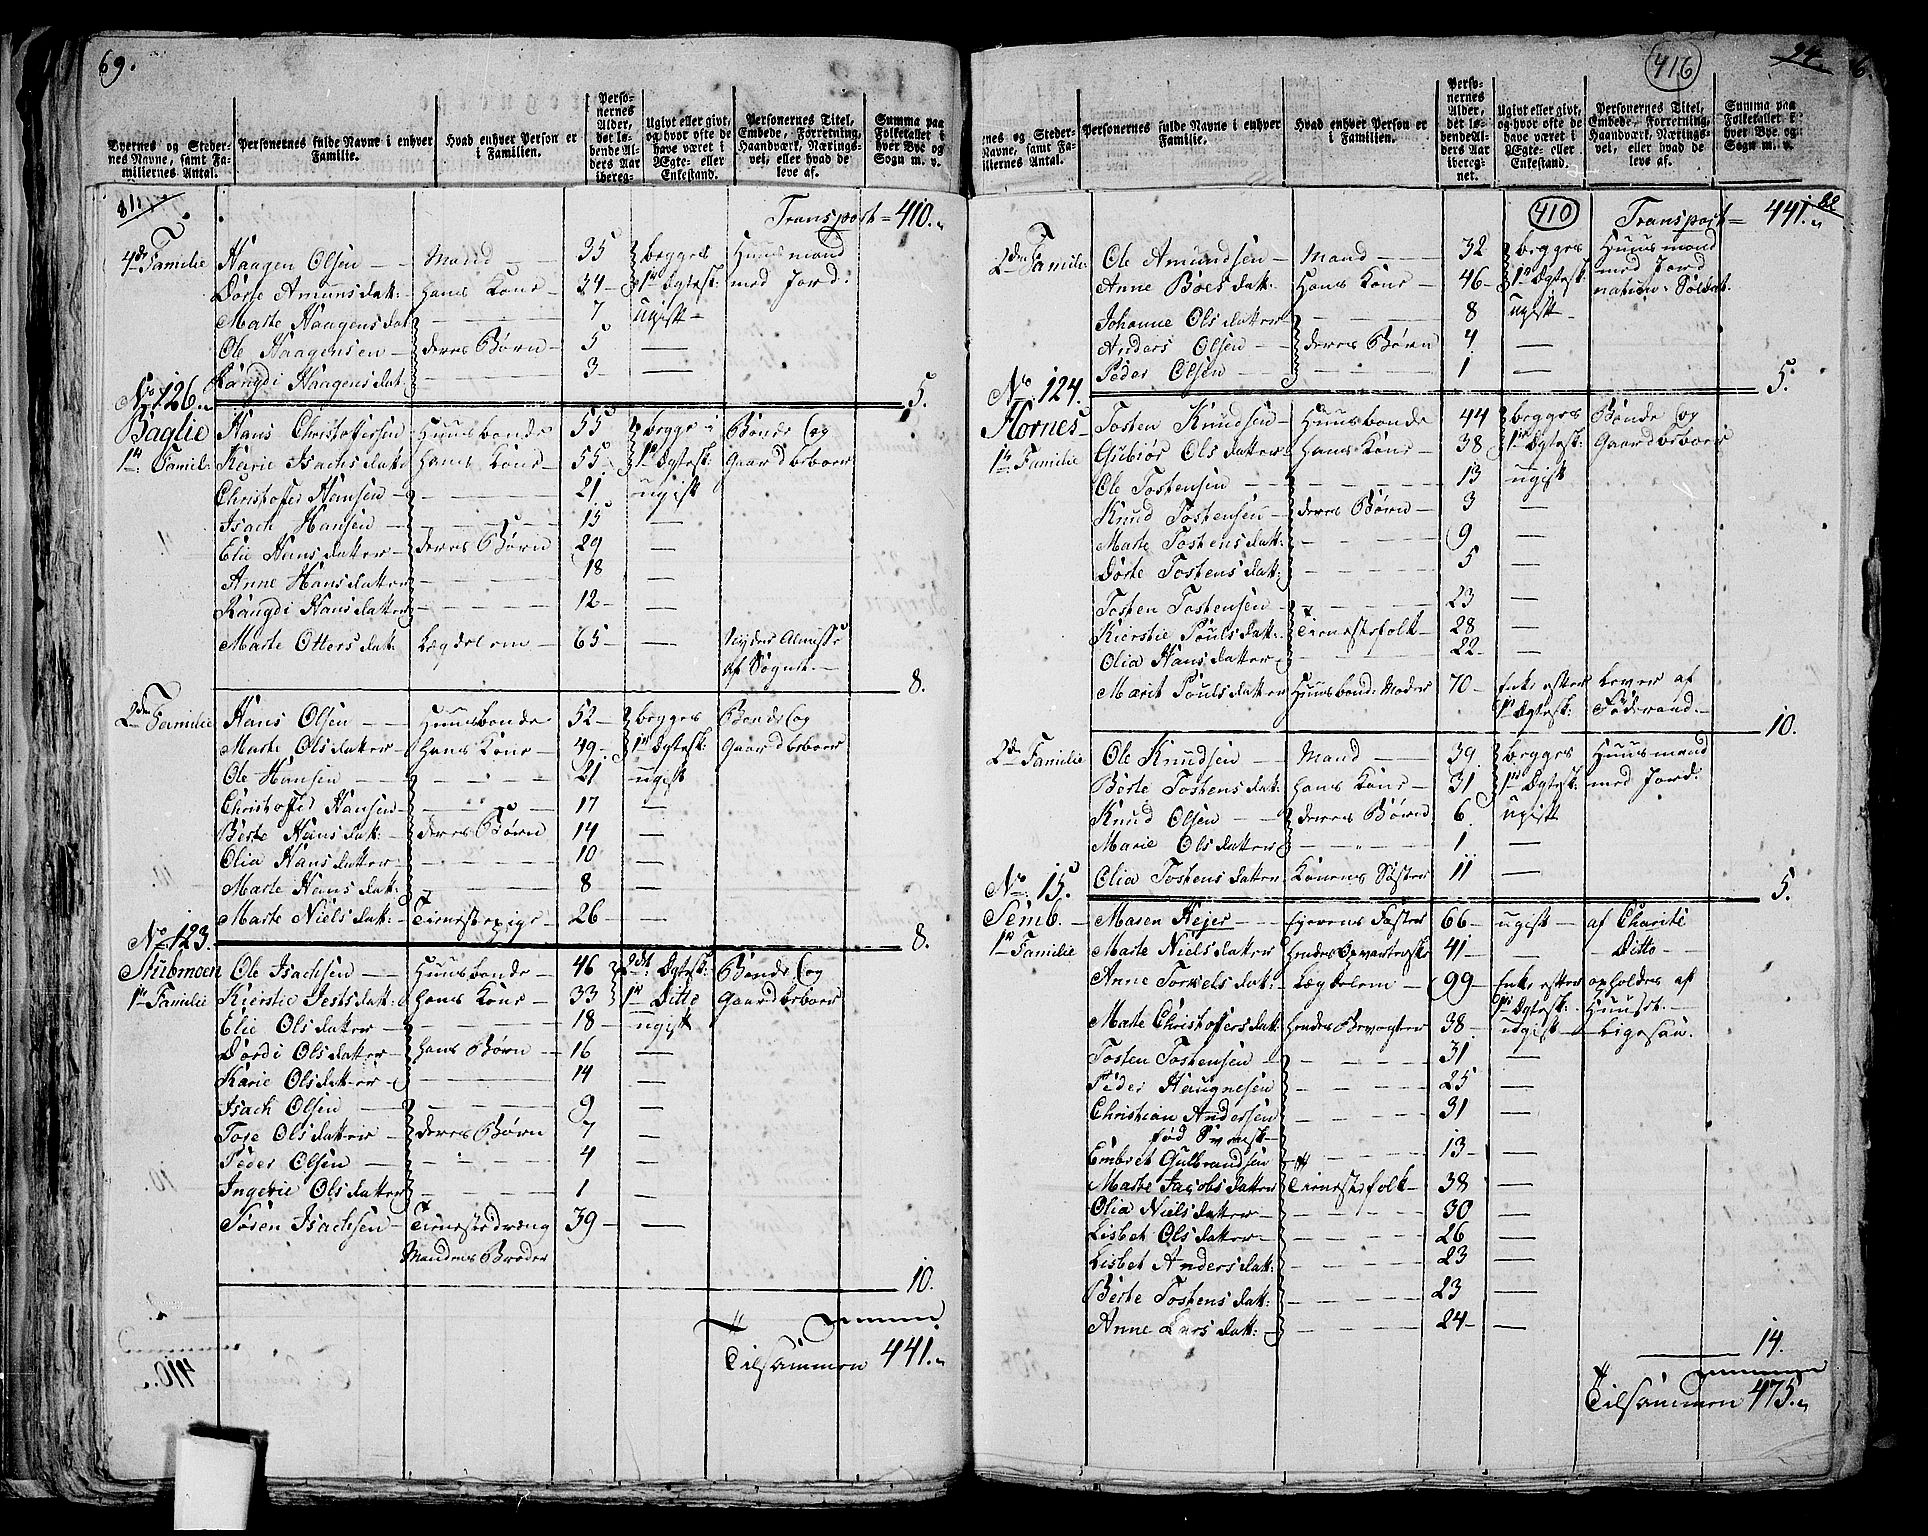 69.
Byernes og Steder-
nes Navne, samt Fa-
miliernes Antal.
Personernes fulde Navne i enhver
Familie.
Hvad enhver Person er
i Familien.
Perso-
nernes
Alder,
det lø-
bende Al-
ders Aar
ibereg-
Ugivt eller givt,
og hvor ofte de
have været i
Ægte- eller
Enkestand.
Personernes Titel,
Embede, Forretning,
Haandværk, Nærings-
vei, eller hvad de
leve af.
Summa paa
Folketallet i
hver Bye og
Sogn m. v.
Transport = 410.
4de Familie Haagen Olsen Mand 35 begges Huusmand
Dorte Amunsdatt: hans Kone 34 1te Ægtesk: med Jord:
Marte Haagensdat 7 ugift
Ole Haagensen deres Børn 5 —
Rangdi Haagensdat 3 — 5.
No 126.
Baglie Hans Christoffersen Huusbonde 55 begge i Bonde og
1te Famil. Karie Isachsdatt hans Kone 55 1te Ægtesk: Gaardbeboer
Christoffer Hansen 21 ugift
Isach Hansen 15 —
Elie Hansdatter deres Børn 29 —
Anne Hansdatter 18 —
Rangdi Hansdatter 12 —
Marte Ottersdatt: Lægdelem 65 — Nyder Almisse
af Sogne. 8.
2den Familie Hans Olsen Huusbonde 52 begges Bonde og
Marte Olsdatter hans Kone 49 1te Ægtesk: Gaardbeboer
Ole Hansen 21 ugift
Christoffer Hansen 17 —
Berte Hansdatt: deres Børn 14 —
Olia Hansdatter 10 —
Marte Hansdatt: 8 —
Marte Nielsdatt: Tienestepige 26 — 8.
No 123.
Stubmoen Ole Isachsen Huusbonde 46 2det Ægtesk: Bonde og
1te Familie Kierstie Jestsdatt: hans Kone 33 1te Ditto Gaardbeboer
Elie Olsdatter 18 ugift
Dordi Olsdatter hans Børn 16 —
Karie Olsdatter 14 —
Isach Olsen 9 —
Tore Olsdatter deres Børn 7 —
Peder Olsen 4 —
Ingerie Olsdatter 1 —
Søren Isachsen Tienestedræng 39 —
Mandens Broder 10.
Tilsammen 441.
416
94
nes og Steder-
Navne, samt Fa-
iliernes Antal.
Personernes fulde Navne i enhver
Familie.
Hvad enhver Person er
i Familien.
Perso-
nernes
Alder,
det lø-
bende Al-
ders Aar
ibereg-
net.
Ugivt eller givt,
og hvor ofte de
have været i
Ægte- eller
Enkestand.
Personernes Titel,
Embede, Forretning,
Haandværk, Nærings-
vei, eller hvad de
leve af.
Summa paa
Folketallet i
hver Bye og
Sogn m. v.
410 Transport = 441.
2den Famili Ole Amundsen Mand 32 begges Huusmand
Anne Boesdatt: hans Kone 46 1te Ægtesk: med Jord
Johanne Olsdatter 8 ugift nation: Soldat.
Anders Olsen deres Børn 4 —
Peder Olsen 1 — 5.
No 124.
Hornes Tosten Knudsen Huusbonde 44 begges Bonde og
1te Familie Gubiør Olsdatter hans Kone 38 1te Ægtesk: Gaardbeboer
Ole Tostensen 13 ugift
Knud Tostensen deres Børn 3 —
Marte Tostensdatt: 9 —
Dorte Tostensdatt: 5 —
Tosten Tostensen 23 —
Kierstie Poulsdatt: Tienestefolk 28 —
Olia Hansdatter 22 —
Marit Poulsdatter Huusbond: Moder 70 Enke efter lever af
1te Ægtesk: Föderaad. 10.
2den Familie Ole Knudsen Mand 39 begges Huusmand
Berte Tostensdatt: hans Kone 31 1te Ægtesk: med Jord:
Knud Olsen deres Børn 6 ugift
Marie Olsdatter 1 —
Olia Tostensdatter Konens Søster 11 — 5.
No 15.
Semb. Maren Hejer Ejerens Faster 66 ugift af Charite
1te Familie Marte Nielsdatter hendes Opvarterske 41 — Ditto
Anne Torkelsdatt: Lægdelem 99 Enke efter opholdes af
1te Ægtesk: Huusk.
Marte Christoffersdatt: hendes Bevogter 38 ugift ligesaa.
Tosten Tostensen 31 —
Peder Haugnesen 25 —
Christian Andersen 31 —
fød Svensk
Embret Gulbrandsen 13 —
Marte Jacobsdatter Tienestefolk 38 —
Olia Nielsdatter 30 —
Lisbet Olsdatter 26 —
Lisbet Andersdatt: 23 —
Berte Tostensdatt: 23 —
Anne Larsdatt: 24 — 14.
Tilsammen 475.